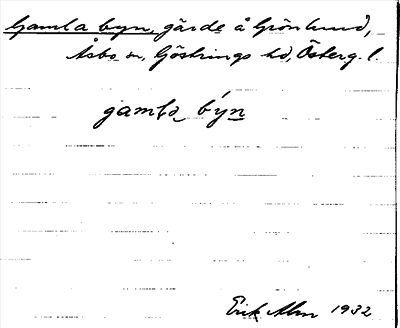 Gamla byn, gärde å Grönlund,
Åsbo sn, Göstrings hd, Österg. l.
gamla byn
Erik Alm 1932